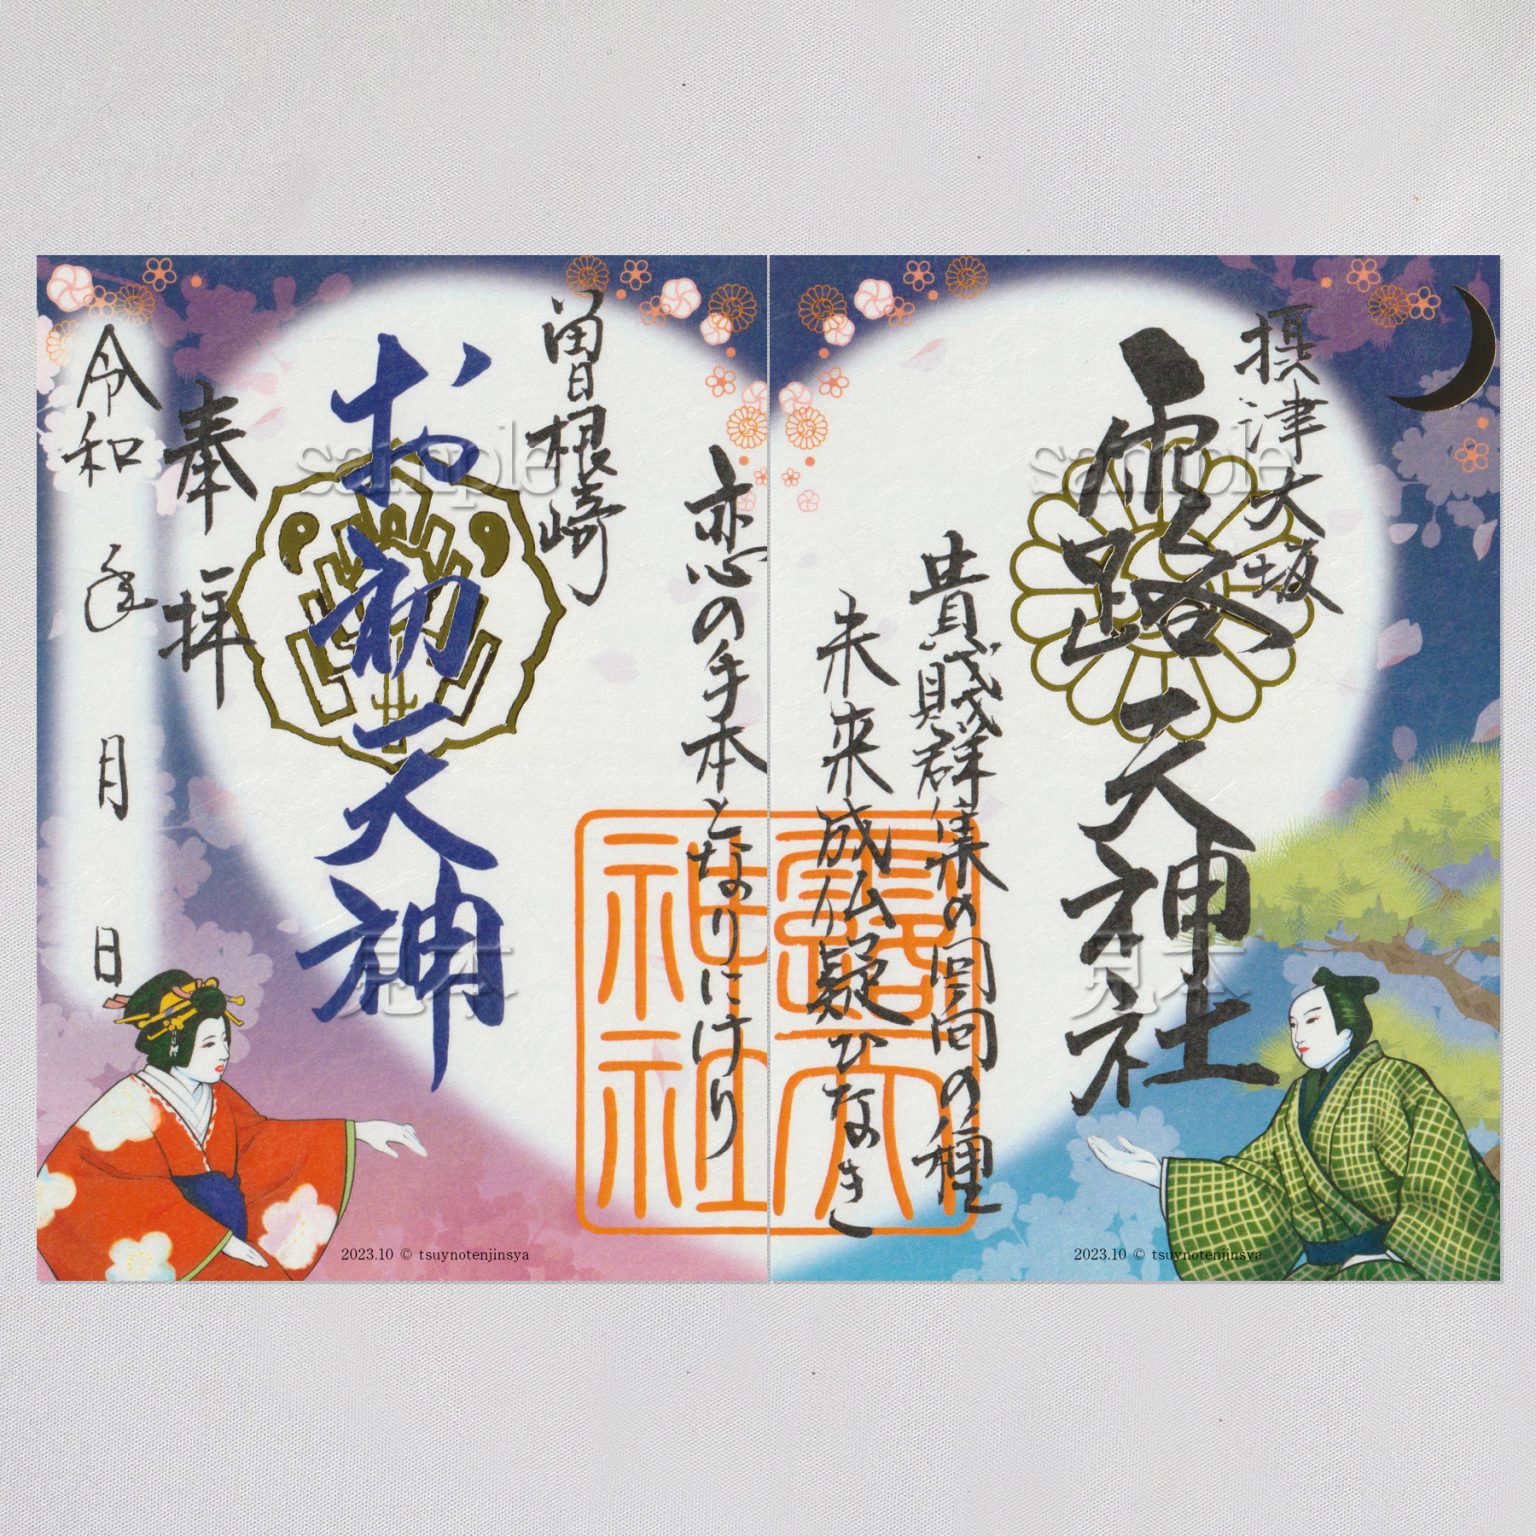 摂津大坂
露天神社
貴賤群集の回向の種
未来成仏疑ひなき
恋の手本となりにけり
曽根崎
お初天神
奉拝
令和 年 月 日
露天
神社
sample
見本
sample
見本
2023.10 © tsuynotenjinsya
2023.10 © tsuynotenjinsya